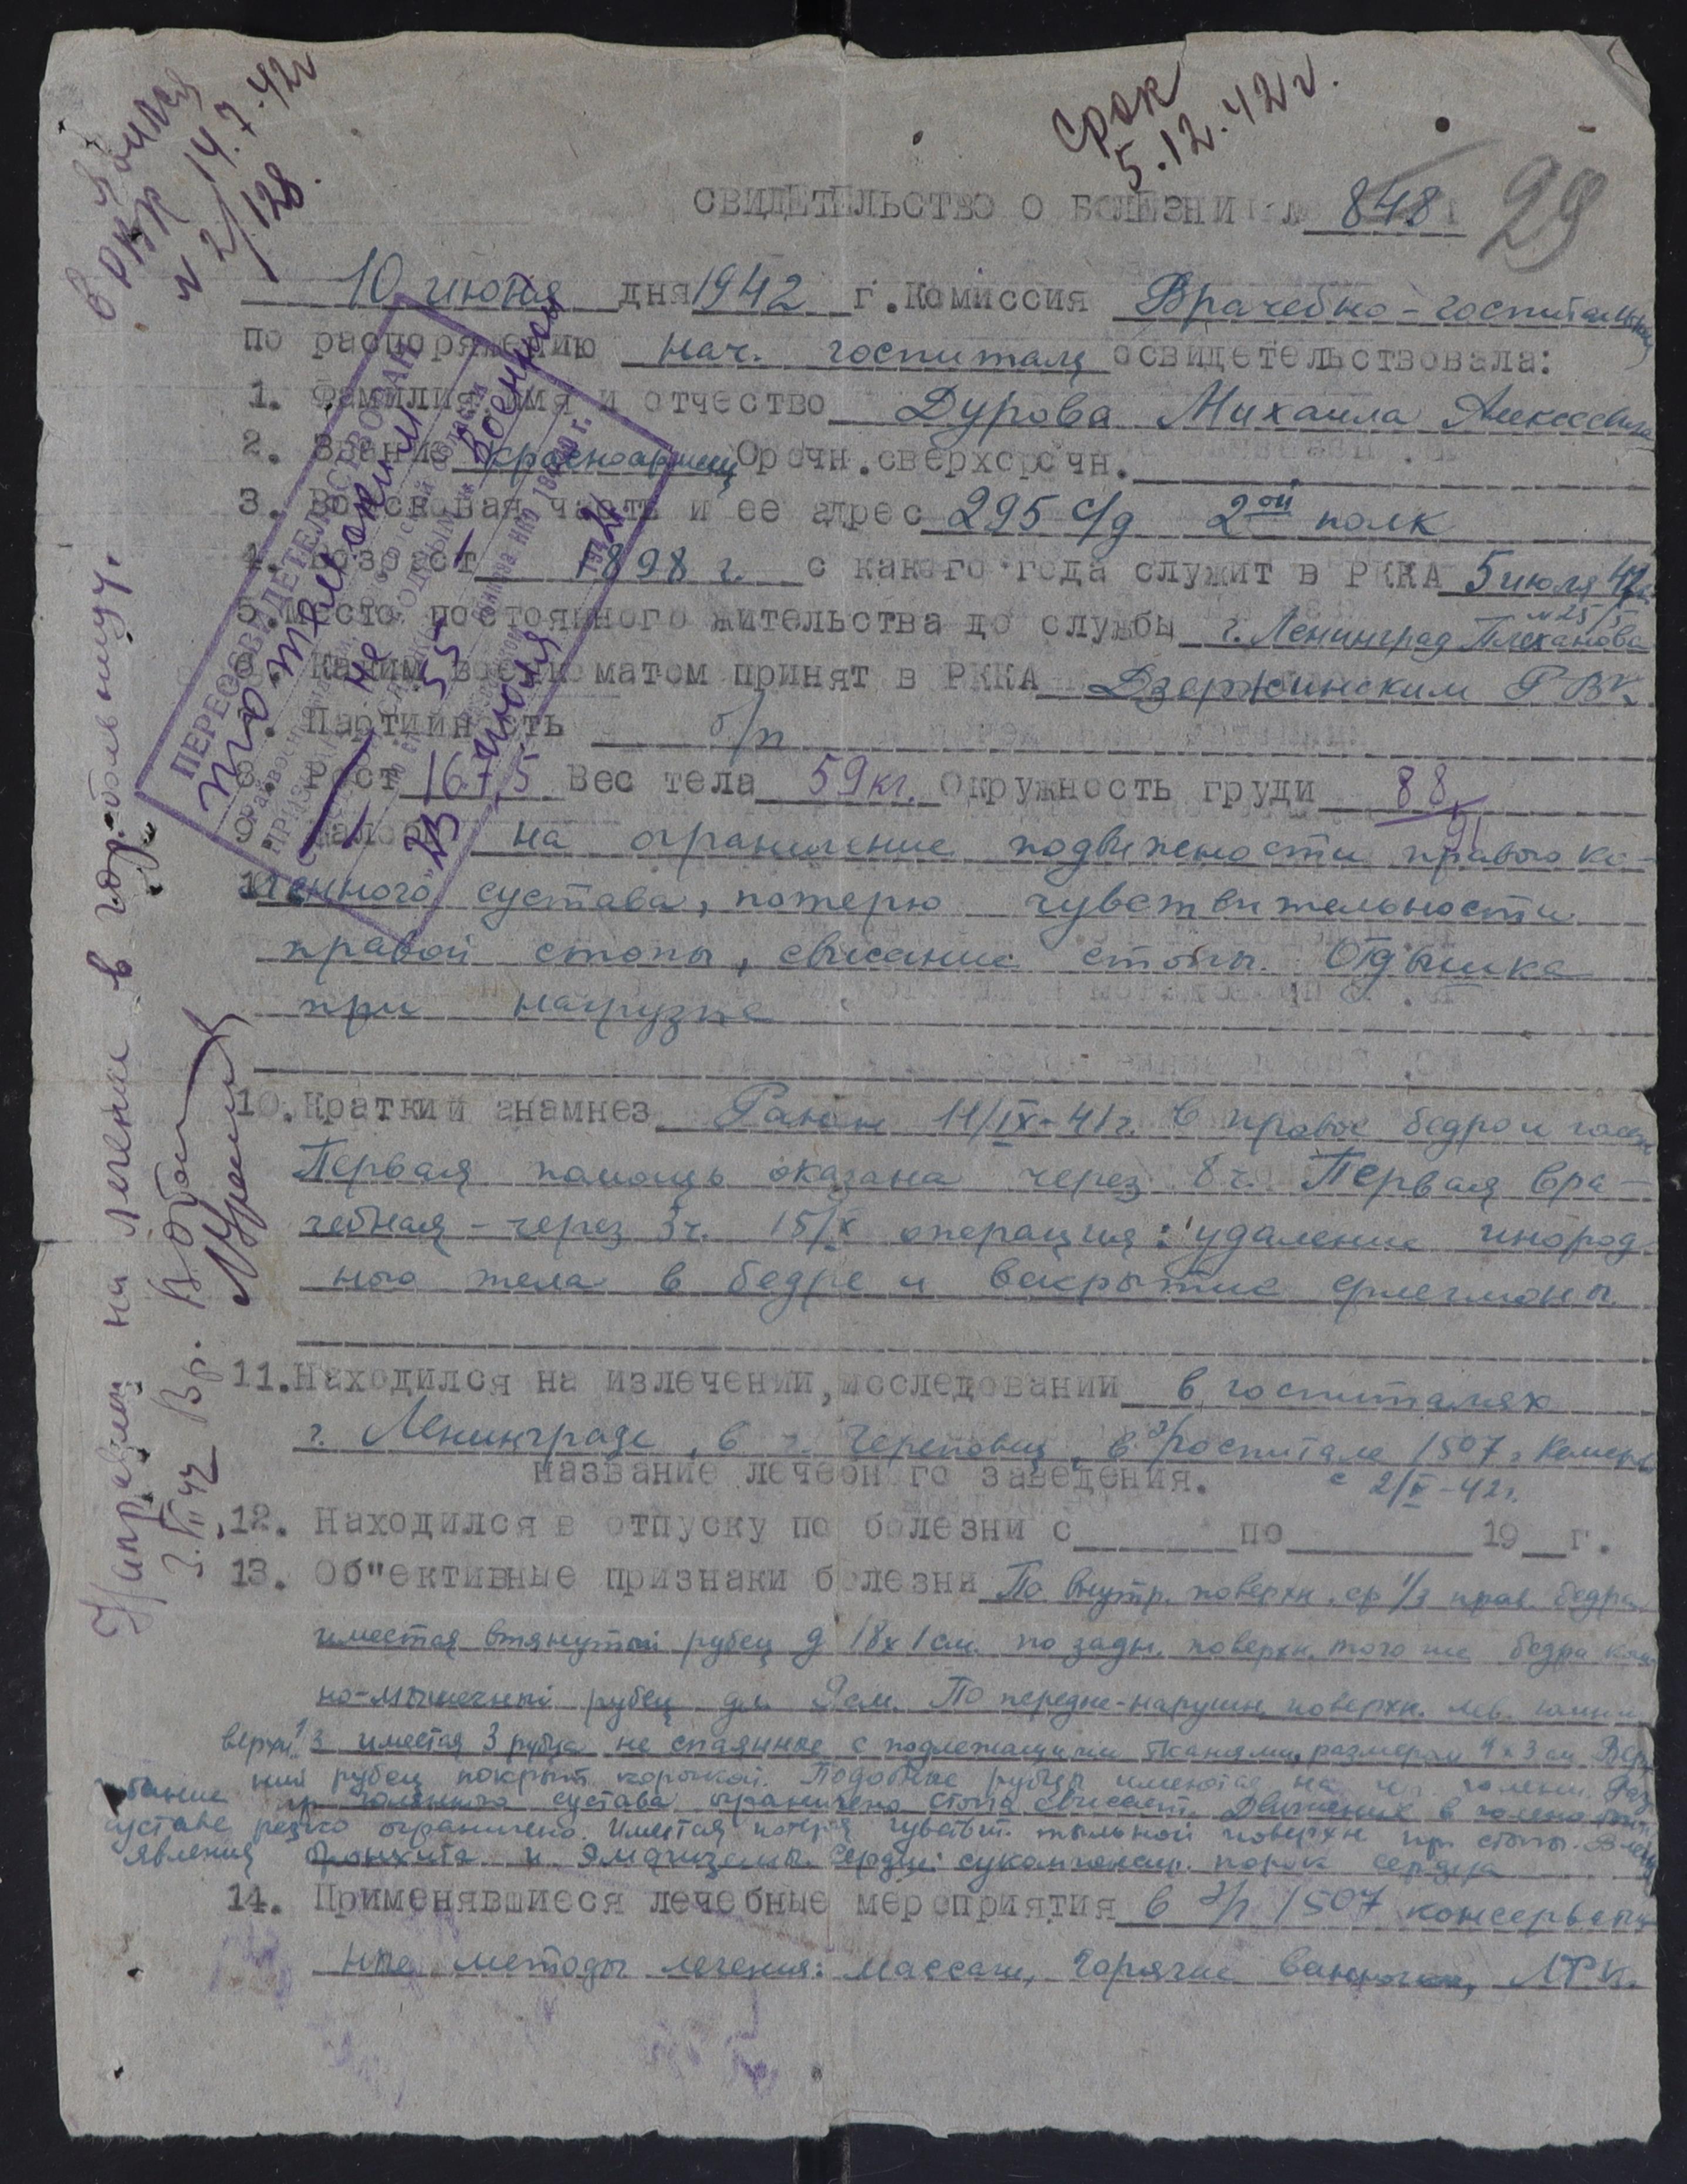 Срок
5.12.42 г.
явился
в РВК 14.7.42 г
29
СВИДЕТЕЛЬСТВО О БОЛЕЗНИ № 848
10 июня дня 1942 г. Комиссия Врачебно-госпитальная
по распоряжению нач. госпиталя освидетельствовала:
1. Фамилия имя и отчество Дурова Михаила Алексеевича
2. Звание красноармеец Срочн.сверхсрочн.
3. Войсковая часть и ее адрес 295 с/д 2ой полк
4. Возраст 1898 г. с какого года служит в РККА 5 июля 41 г.
5. Место постоянного жительства до службы г. Ленинград Плеханова
6. Каким военкоматом принят в РККА Дзержинским РВК
7. Партийность б/п
8. Рост 167,5 Вес тела 59 кг. Окружность груди 88
91
9. Жалобы на ограничение подвижности правого ко-
ленного сустава, потерю чувствительности
правой стопы, свисание стопы. Отдышка
при нагрузке
10. Краткий анамнез Ранен 11/IX-41г. в правое бедро и голен
Первая помощь оказана через 8 ч. Первая вра-
чебная - через 3ч. 15/X операция: удаление инород
ного тела в бедре и вскрытие флегмоны.
11. Находился на излечении, исследовании в госпиталях
г. Ленинграде, в г. Череповец, в э/госпитале 1507 г. Кемеров
название лечебного заведения. с 2/II-42г.
12. Находился в отпуску по болезни с по 19 г.
13. Об"ективные признаки болезни По внутр. поверхн. ср 1/3 прав. бедра
имеется втянутый рубец д 18х1см. по задн. поверхн. того же бедра кож
но-мышечный рубец дл. см. По передне-наружн. поверхн. лев. голени
верхн. 1/3 имеется 3 рубца не спаянные с подлежащими тканями, размером 4х3 см. Верх
ний рубец покрыт корочкой. Подобные рубцы имеются на пр. голени. Раз
гибание голенного сустава ограничено стопа свисает. Движение в голеностоп.
суставе резко ограничено. Имеется потеря чувствит. тыльной поверхн пр. стопы. В легк
явления бронхита и эмфиземы. Сердце: порок сердца
14. Применявшиеся лечебные мероприятия в э/г 1507 консерватив
ные методы лечения: массаж, горячие ванночки, ЛФК.
ПЕРЕОСВИДЕТЕЛЬСТВОВАН
23 июня
Направлен на лечение в гор. больницу.
3.VII 42 Вр.